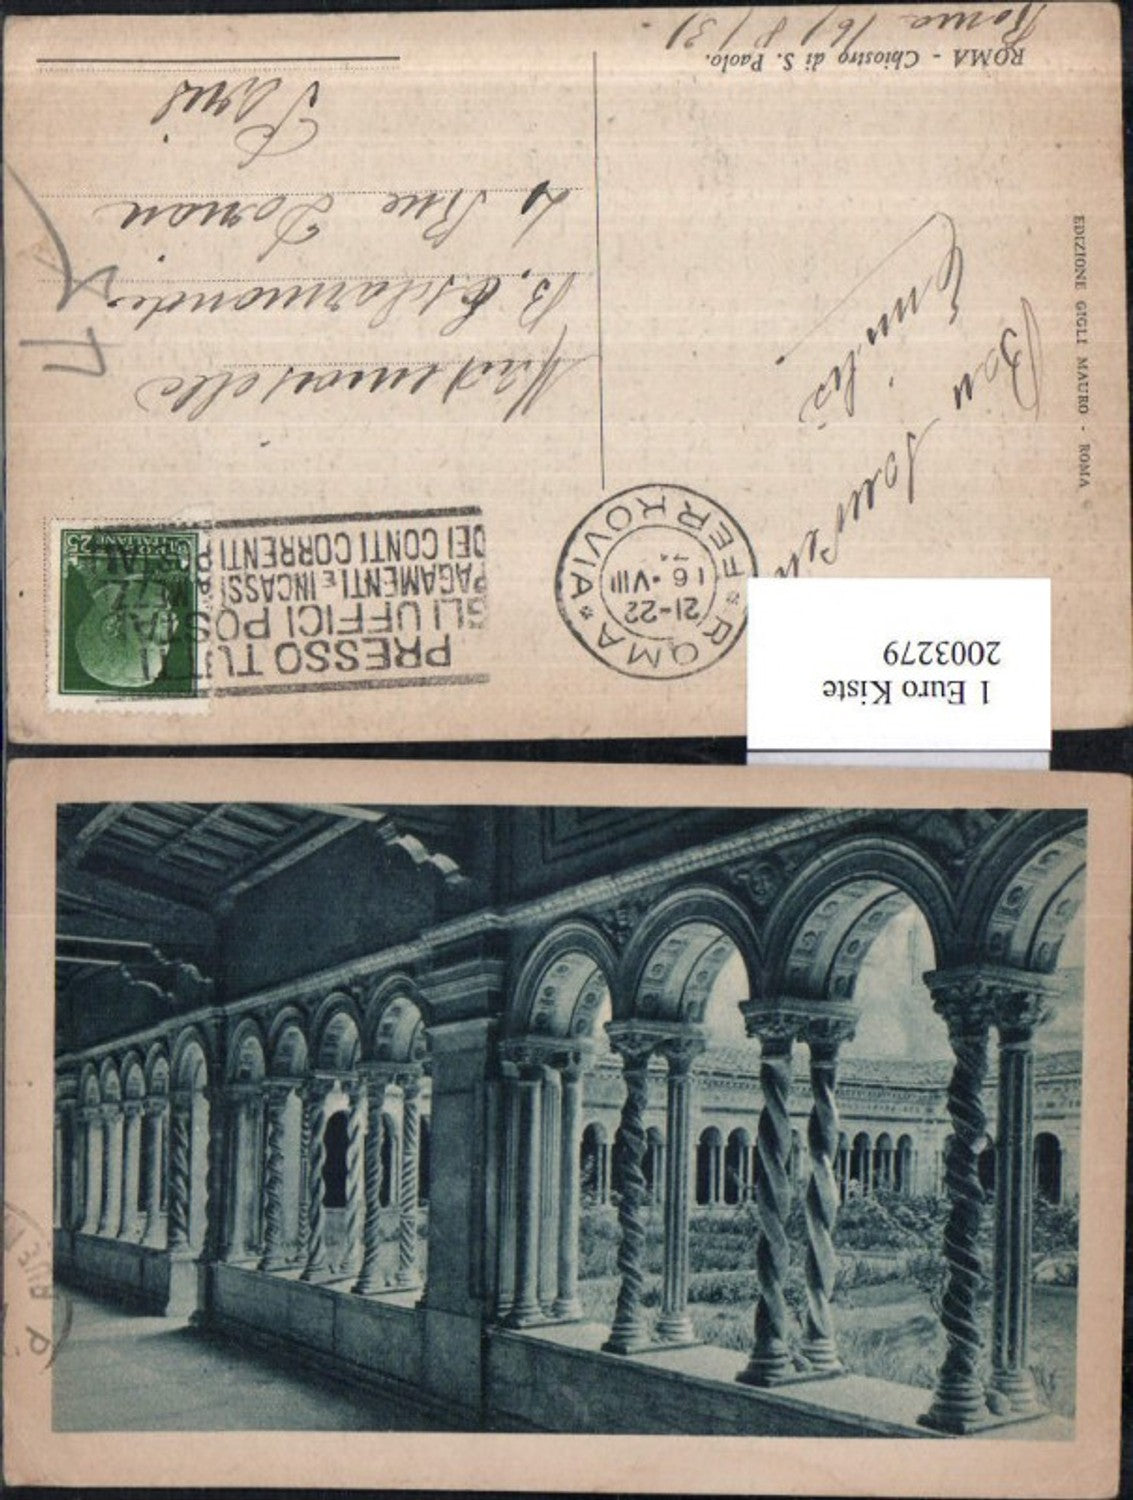 Roma 16/8/31.
ROMA - Chiostro di S. Paolo.
EDIZIONE GIGLI MAURO - ROMA
Bon
Emilis
Mademoiselle
B. Esclarmonde
Rue Dorian
Paris
ROMA * FERROVIA *
21-22
16·VIII
PRESSO TUTTI
GLI UFFICI POSTALI
PAGAMENTI E INCASSI
DEI CONTI CORRENTI
POSTE ITALIANE
25
1 Euro Kiste
2003279